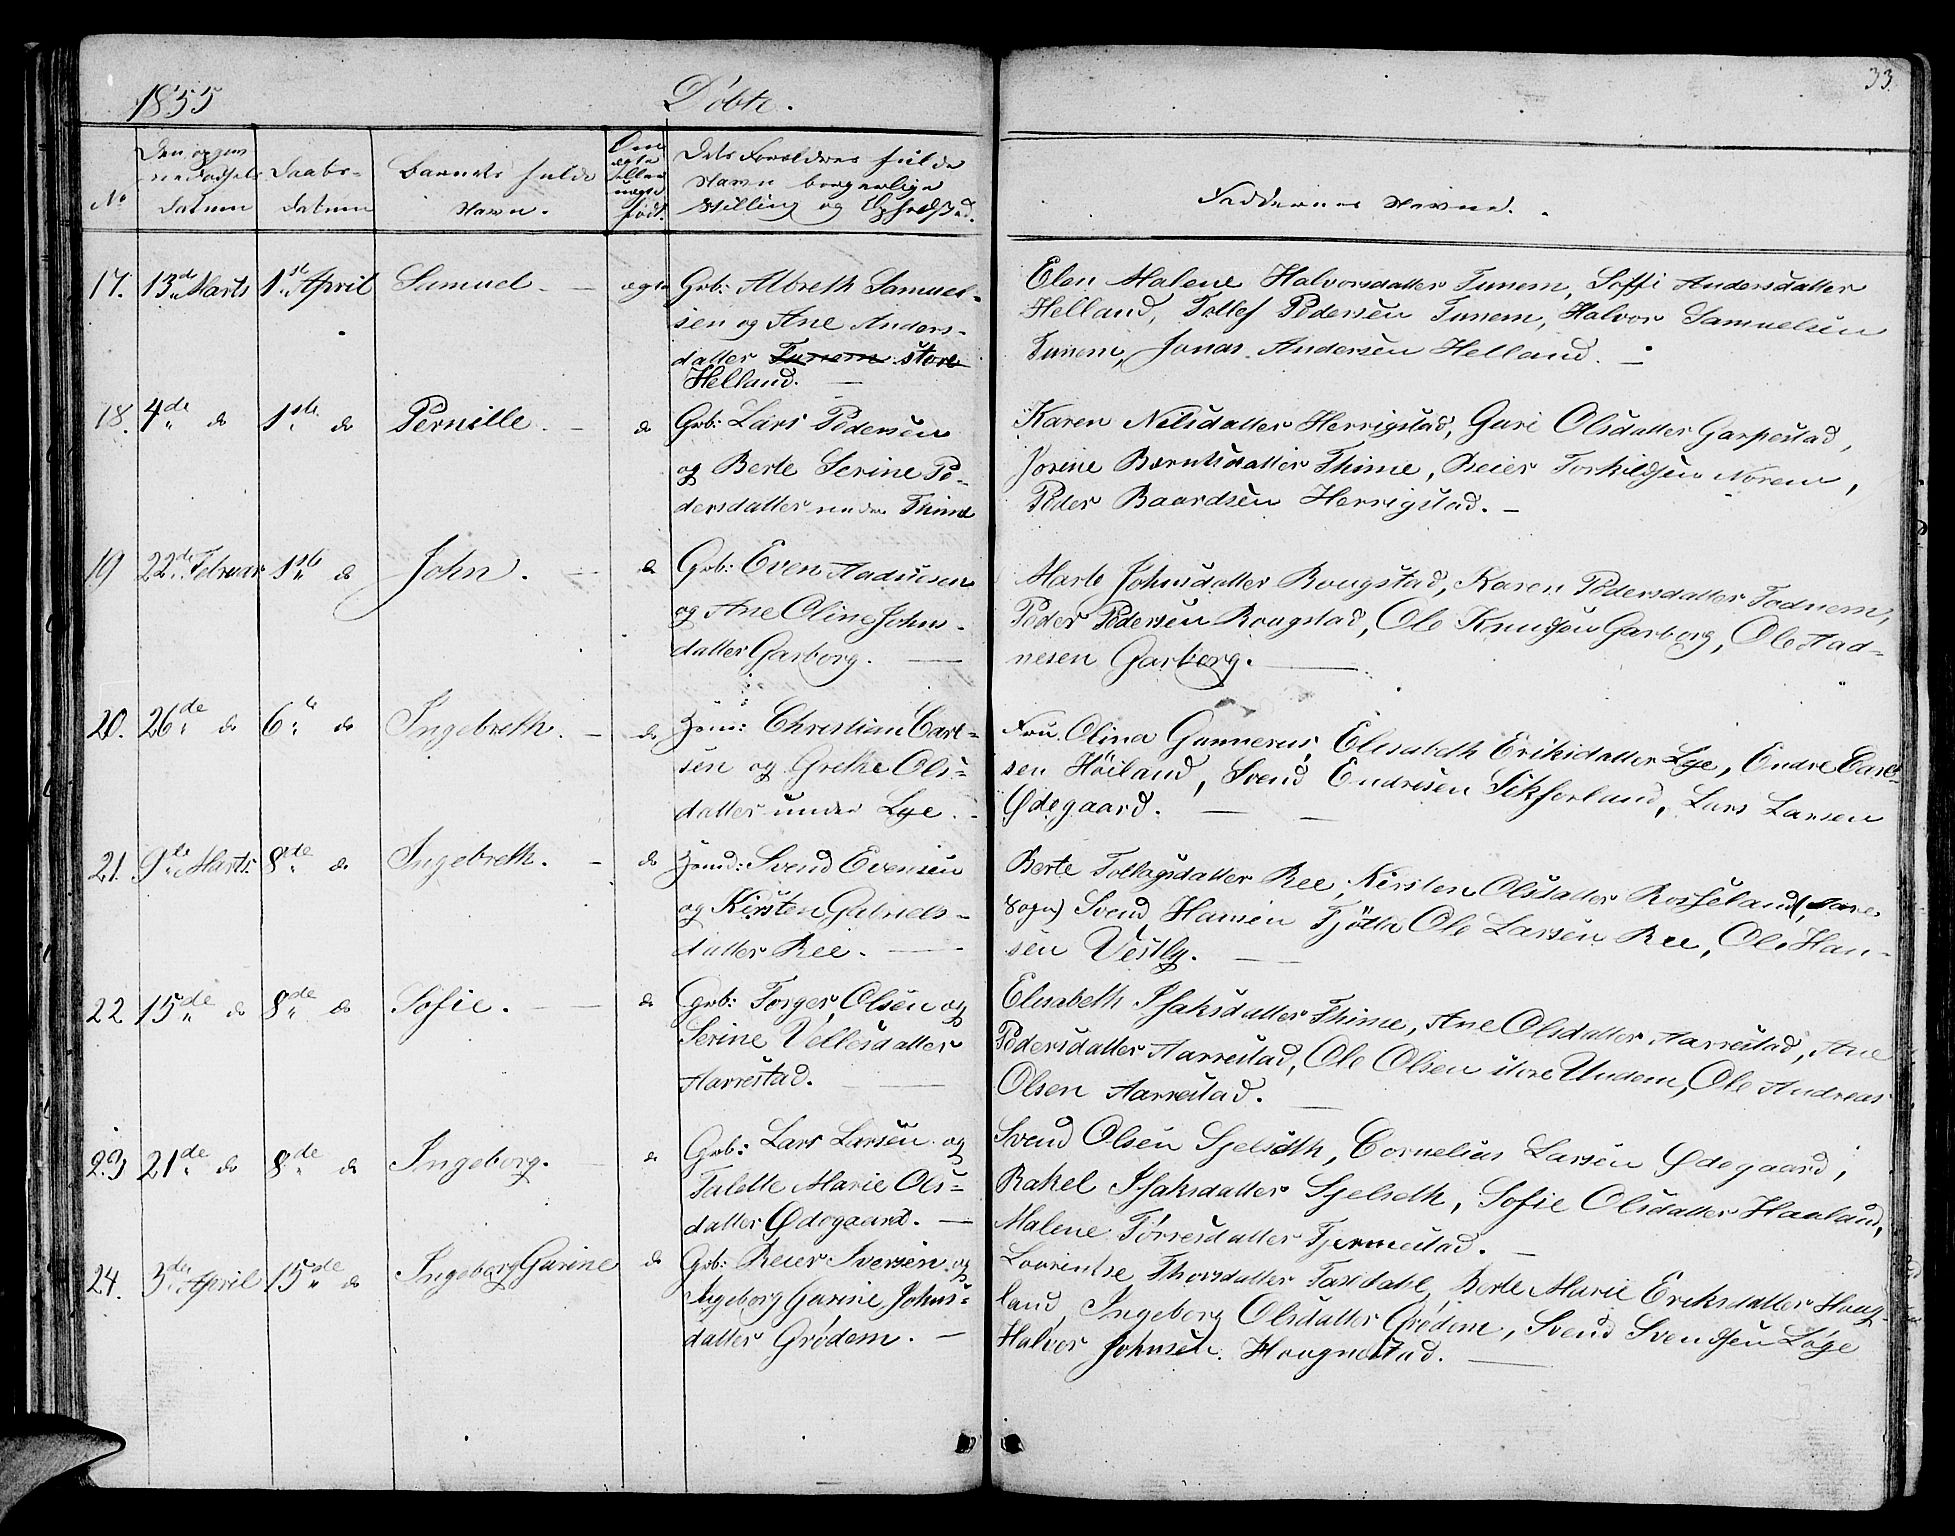 1855 Døbte. 33
No
Den opgivne Fødsels Datum
Daabs-Datum
Barnets fulde Navn.
Om ægte eller uægte født.
Dets Forældres fulde Navn borgerlige Stilling og Opholdsted.
Faddernes Navne.
17. 13de Marts 1ste April Samuel. — ægte Grb: Albreth Samuel-
sen og Ane Anders-
datter Tunem store
Helland. —
Elen Malene Halvorsdatter Tunem, Soffi Andersdatter
Helland, Tollef Pedersen Tunem, Halvor Samuelsen
Tunem, Jonas Andersen Helland. —
18. 4de do 1ste do Pernille. — do Grb: Lars Pedersen
og Berte Serine Pe-
dersdatter nedre Thime
Karen Nilsdatter Herrigstad, Guri Olsdatter Garpestad,
Jorine Berntsdatter Thime, Reier Torkildsen Norem,
Peder Baardsen Herrigstad. —
19 22de Februar 1ste do John. — do Grb: Even Aadnesen
og Ane Oline Johns-
datter Garborg. —
Marte Johnsdatter Rougstad, Karen Pedersdatter Todnem,
Peder Pedersen Rougstad, Ole Knudsen Garborg, Ole Aad-
nesen Garborg. —
20. 26de do 6te do Ingebreth. — do Huum: Christian Carl-
sen og Grethe Ols-
datter under Lye. —
Fru Olina Gunnerus, Elisabeth Eriksdatter Lye, Endre Carl-
sen Höiland, Svend Endresen Sikforland, Lars Larsen
Ødegaard. —
21. 9de Marts. 8de do Ingebreth. — do Huusmd: Svend Evensen
og Kirsten Gabriels-
datter Ree. —
Berte Tollagsdatter Ree, Kirsten Olsdatter Rosseland,
Sogn) Svend Hansen Tjötta Ole Larsen Ree, Ole Han-
sen Vestly. —
22 15de do 8de do Sofie. — do Grb: Torger Olsen og
Serine Vellesdatter
Aarrestad. —
Elisabeth Isaksdatter Thime, Ane Olsdatter Aarrestad, Ane
Pedersdatter Aarrestad, Ole Olsen store Undem, Ole Andreas
Olsen Aarrestad. —
23 21de do 8de do Ingeborg. — do Grb: Lars Larsen og
Talette Marie Ols-
datter Ødegaard. —
Svend Olsen Sjelseth, Cornelius Larsen Ødegaard,
Rakel Isaksdatter Sjelseth, Sofie Olsdatter Haaland,
Malene Tørresdatter Tjermestad. —
24. 3die April 15de do Ingeborg Gurine do Grb: Reier Iversen og
Ingeborg Gurine Johns-
datter Grødem. —
Laurentse Thorsdatter Taxdahl, Berte Marie Eriksdatter Houg-
land, Ingeborg Olsdatter Grødem, Svend Svendsen Løge
Halvor Johnsen Hougnestad. —